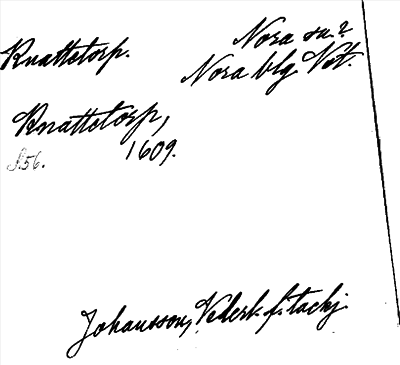 Knattetorp. Nora sn.?
Nora blg. Vst.
Knattetorp,
1609.
S. 56.
Johansson, Vederk. f. tackj.